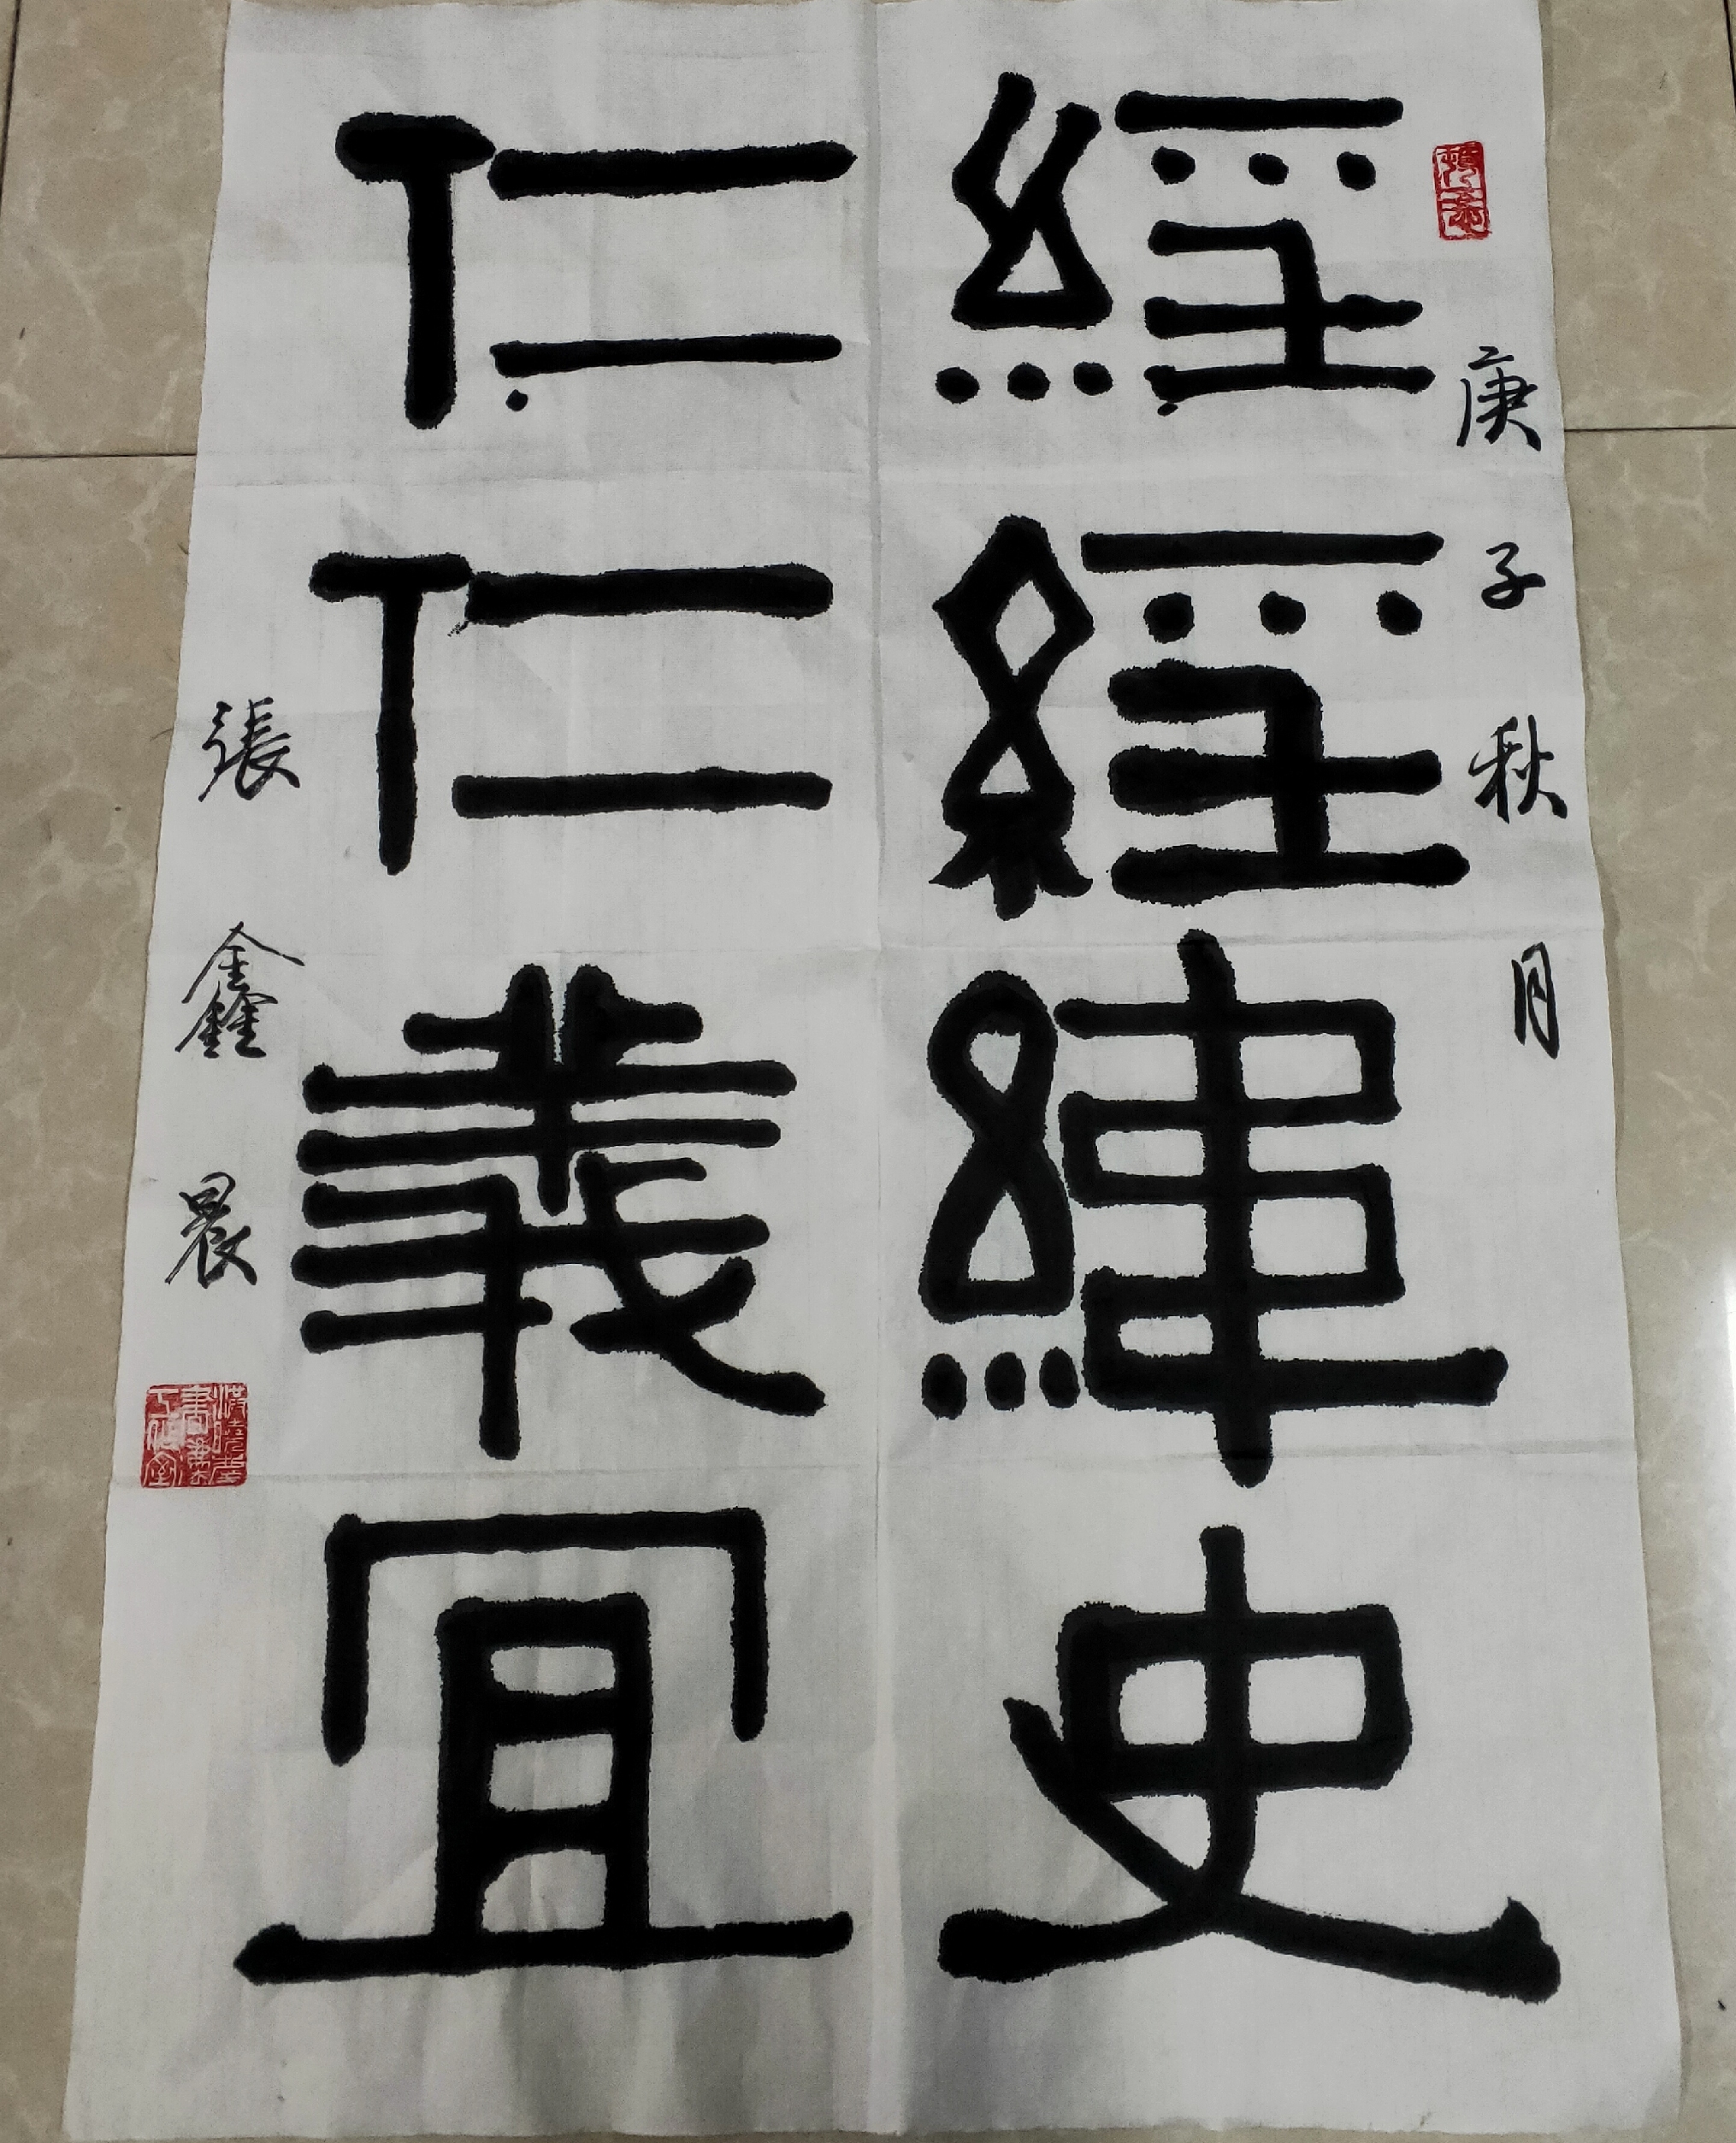 庚子秋月
經經緯史
仁仁義宜
張鑫晨